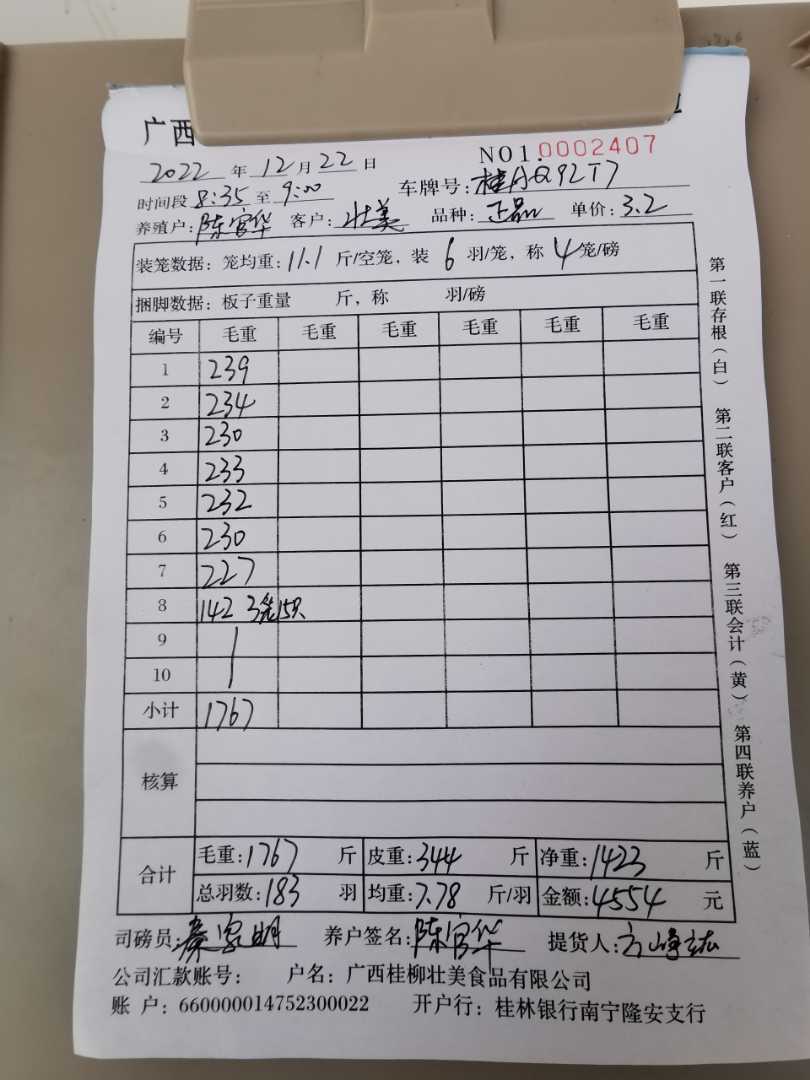 广西
NO1.0002407
2022 年 12 月 22 日
时间段 8:35 至 9:00 车牌号: 桂AQ92T7
养殖户: 陈官华 客户: 壮美 品种: 正品 单价: 3.2
装笼数据: 笼均重: 11.1 斤/空笼, 装 6 羽/笼, 称 4 笼/磅
捆脚数据: 板子重量 斤, 称 羽/磅
编号 毛重 毛重 毛重 毛重 毛重 毛重
1 239
2 234
3 230
4 233
5 232
6 230
7 227
8 142 3笼15只
9
10
小计 1767
核算
合计 毛重: 1767 斤 皮重: 344 斤 净重: 1423 斤
总羽数: 183 羽 均重: 7.78 斤/羽 金额: 4554 元
司磅员: 秦家明 养户签名: 陈官华 提货人:
公司汇款账号: 户名: 广西桂柳壮美食品有限公司
账 户: 660000014752300022 开户行: 桂林银行南宁隆安支行
第一联存根(白) 第二联客户(红) 第三联会计(黄) 第四联养户(蓝)